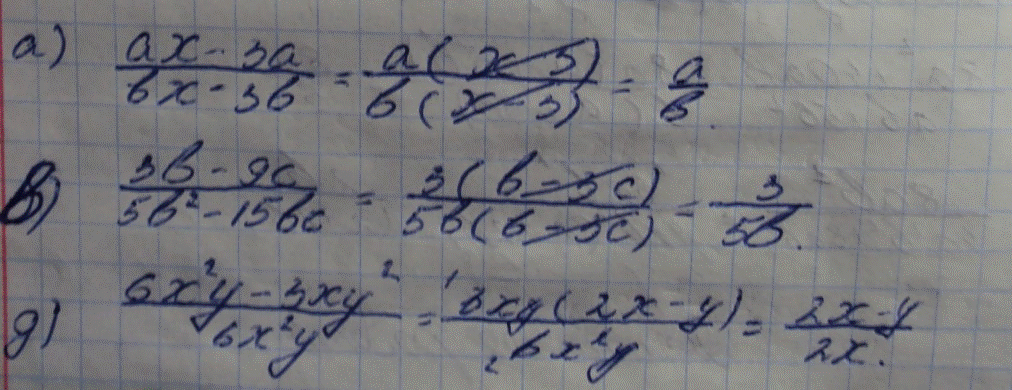 а) (ax - 3a)/(bx - 3b) = a(x-3)/b(x-3) = a/b.
в) (3b - 9c)/(5b² - 15bc) = 3(b-3c)/5b(b-3c) = 3/5b.
д) (6x²y - 3xy²)/6x²y = ¹3xy(2x-y)/₂6x²y = (2x-y)/2x.